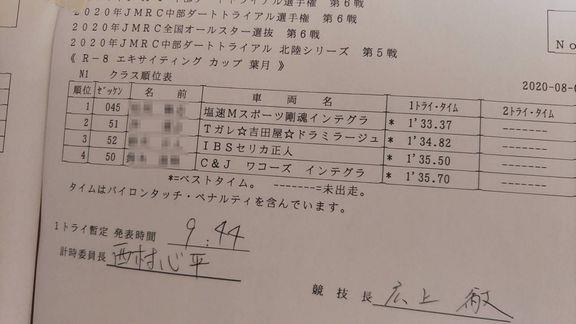 2020年JMRC中部ダートトライアル選手権 第6戦
2020年JMRC全国オールスター選抜 第6戦
2020年JMRC中部ダートトライアル 北陸シリーズ 第5戦
《 R-8 エキサイティング カップ 葉月 》
No
N1 クラス順位表
2020-08-
順位 ゼッケン 名 前 車 両 名 1トライ・タイム 2トライ・タイム
1 045 塩速Mスポーツ剛魂インテグラ * 1'33.37 -------
2 51 Tガレ☆吉田屋☆ドラミラージュ * 1'34.82 -------
3 52 IBSセリカ正人 * 1'35.50 -------
4 50 C&J ワコーズ インテグラ * 1'35.70 -------
*=ベストタイム。 -------=未出走。
タイムはパイロンタッチ・ペナルティを含んでいます。
1トライ暫定 発表時間 9:44
計時委員長 西村心平
競 技 長 広上 敏